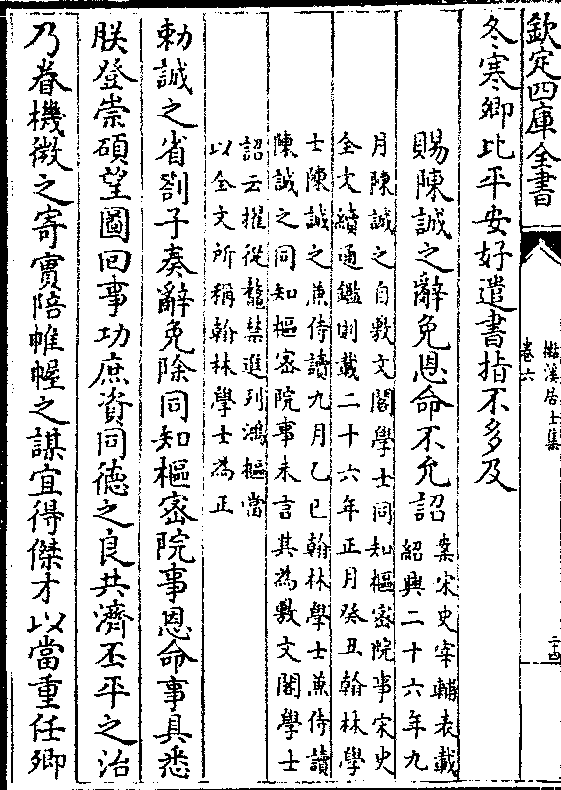 欽定四庫全書
檆溪居士集
卷六
二十四
冬寒卿比平安好遣書指不多及
賜陳誠之辭免恩命不允詔
案宋史宰輔表載
紹興二十六年九
月陳誠之自敷文閣學士同知樞密院事宋史
全文續通鑑則載二十六年正月癸丑翰林學
士陳誠之兼侍讀九月乙巳翰林學士兼侍讀
陳誠之同知樞密院事未言其為敷文閣學士
詔云擢從鼇禁進列鴻樞當
以全文所稱翰林學士為正
勅誠之省劄子奏辭免除同知樞密院事恩命事具悉
朕登崇碩望圖回事功庶資同德之良共濟丕平之治
乃眷機微之寄實陪帷幄之謀宜得傑才以當重任卿